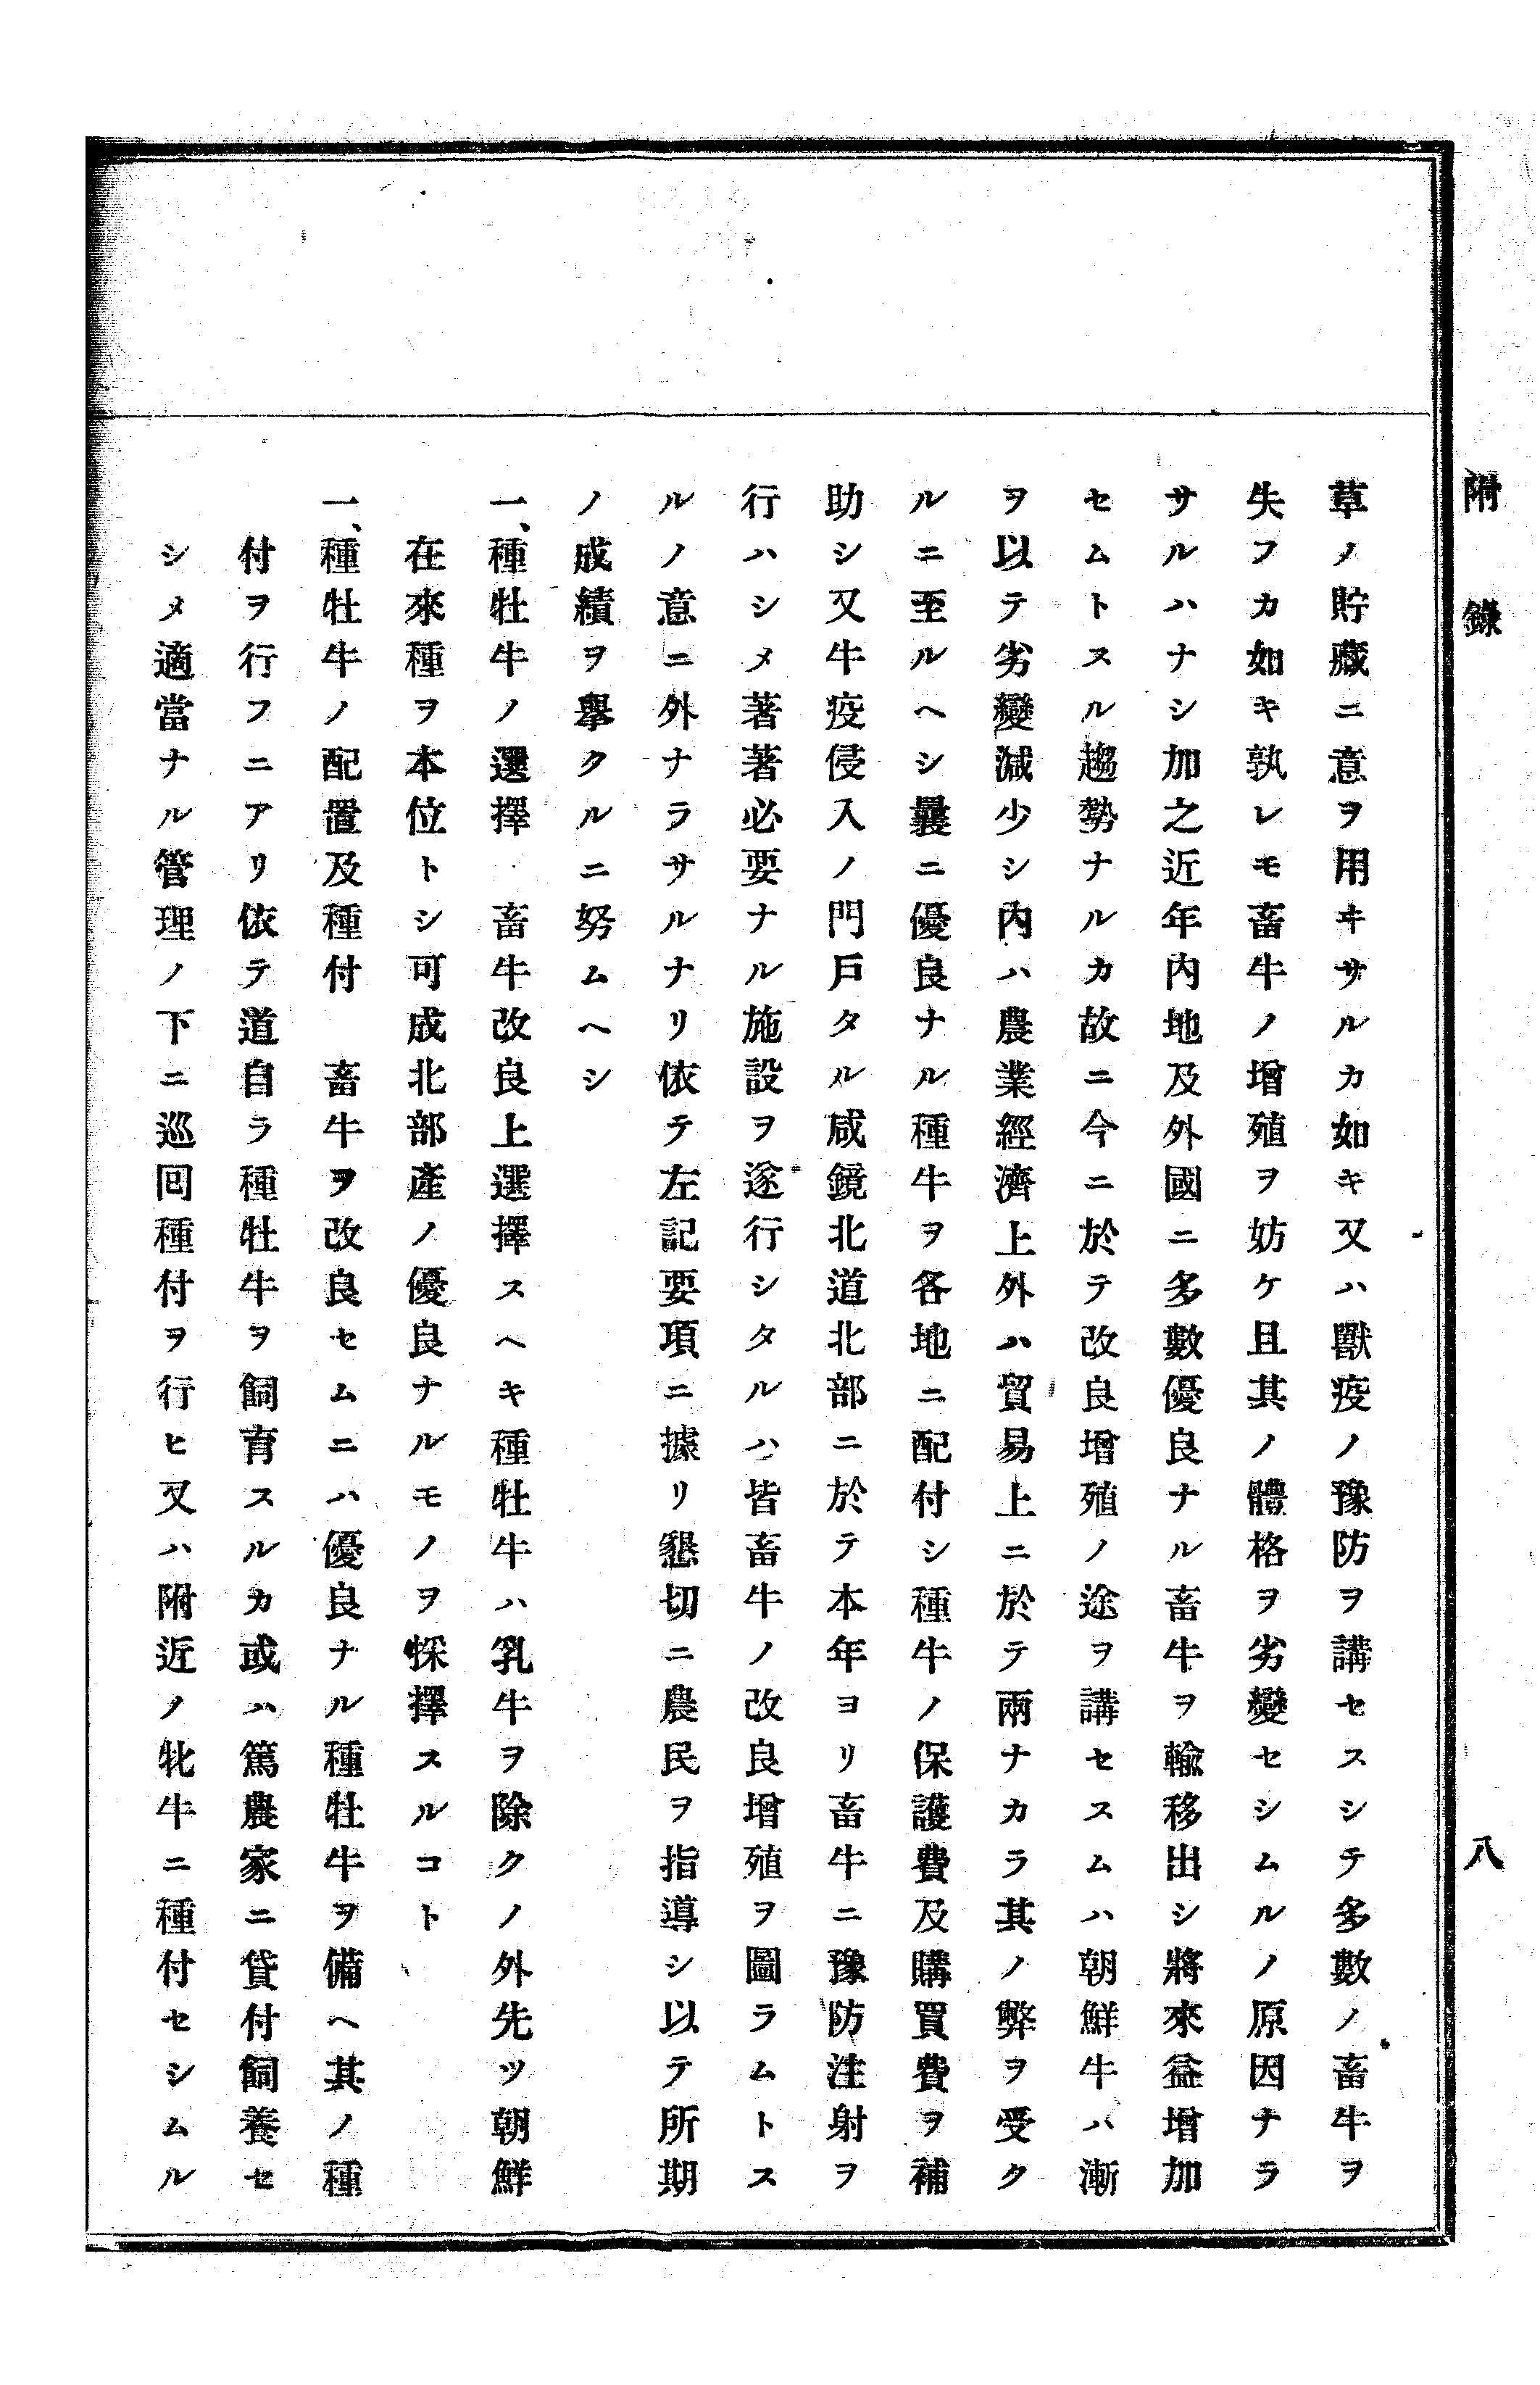 附錄 八
草ノ貯藏ニ意ヲ用ヰサルカ如キ又ハ獸疫ノ豫防ヲ講セスシテ多數ノ畜牛ヲ
失フカ如キ孰レモ畜牛ノ增殖ヲ妨ケ且其ノ體格ヲ劣變セシムルノ原因ナラ
サルハナシ加之近年內地及外國ニ多數優良ナル畜牛ヲ輸移出シ將來益增加
セムトスル趨勢ナルカ故ニ今ニ於テ改良增殖ノ途ヲ講セスムハ朝鮮牛ハ漸
ヲ以テ劣變減少シ內ハ農業經濟上外ハ貿易上ニ於テ兩ナカラ其ノ弊ヲ受ク
ルニ至ルヘシ曩ニ優良ナル種牛ヲ各地ニ配付シ種牛ノ保護費及購買費ヲ補
助シ又牛疫侵入ノ門戶タル咸鏡北道北部ニ於テ本年ヨリ畜牛ニ豫防注射ヲ
行ハシメ著著必要ナル施設ヲ遂行シタルハ皆畜牛ノ改良增殖ヲ圖ラムトス
ルノ意ニ外ナラサルナリ依テ左記要項ニ據リ懇切ニ農民ヲ指導シ以テ所期
ノ成績ヲ擧クルニ努ムヘシ
一、種牡牛ノ選擇 畜牛改良上選擇スヘキ種牡牛ハ乳牛ヲ除クノ外先ツ朝鮮
在來種ヲ本位トシ可成北部產ノ優良ナルモノヲ採擇スルコト
一、種牡牛ノ配置及種付 畜牛ヲ改良セムニハ優良ナル種牡牛ヲ備ヘ其ノ種
付ヲ行フニアリ依テ道自ラ種牡牛ヲ飼育スルカ或ハ篤農家ニ貸付飼養セ
シメ適當ナル管理ノ下ニ巡回種付ヲ行ヒ又ハ附近ノ牝牛ニ種付セシムル